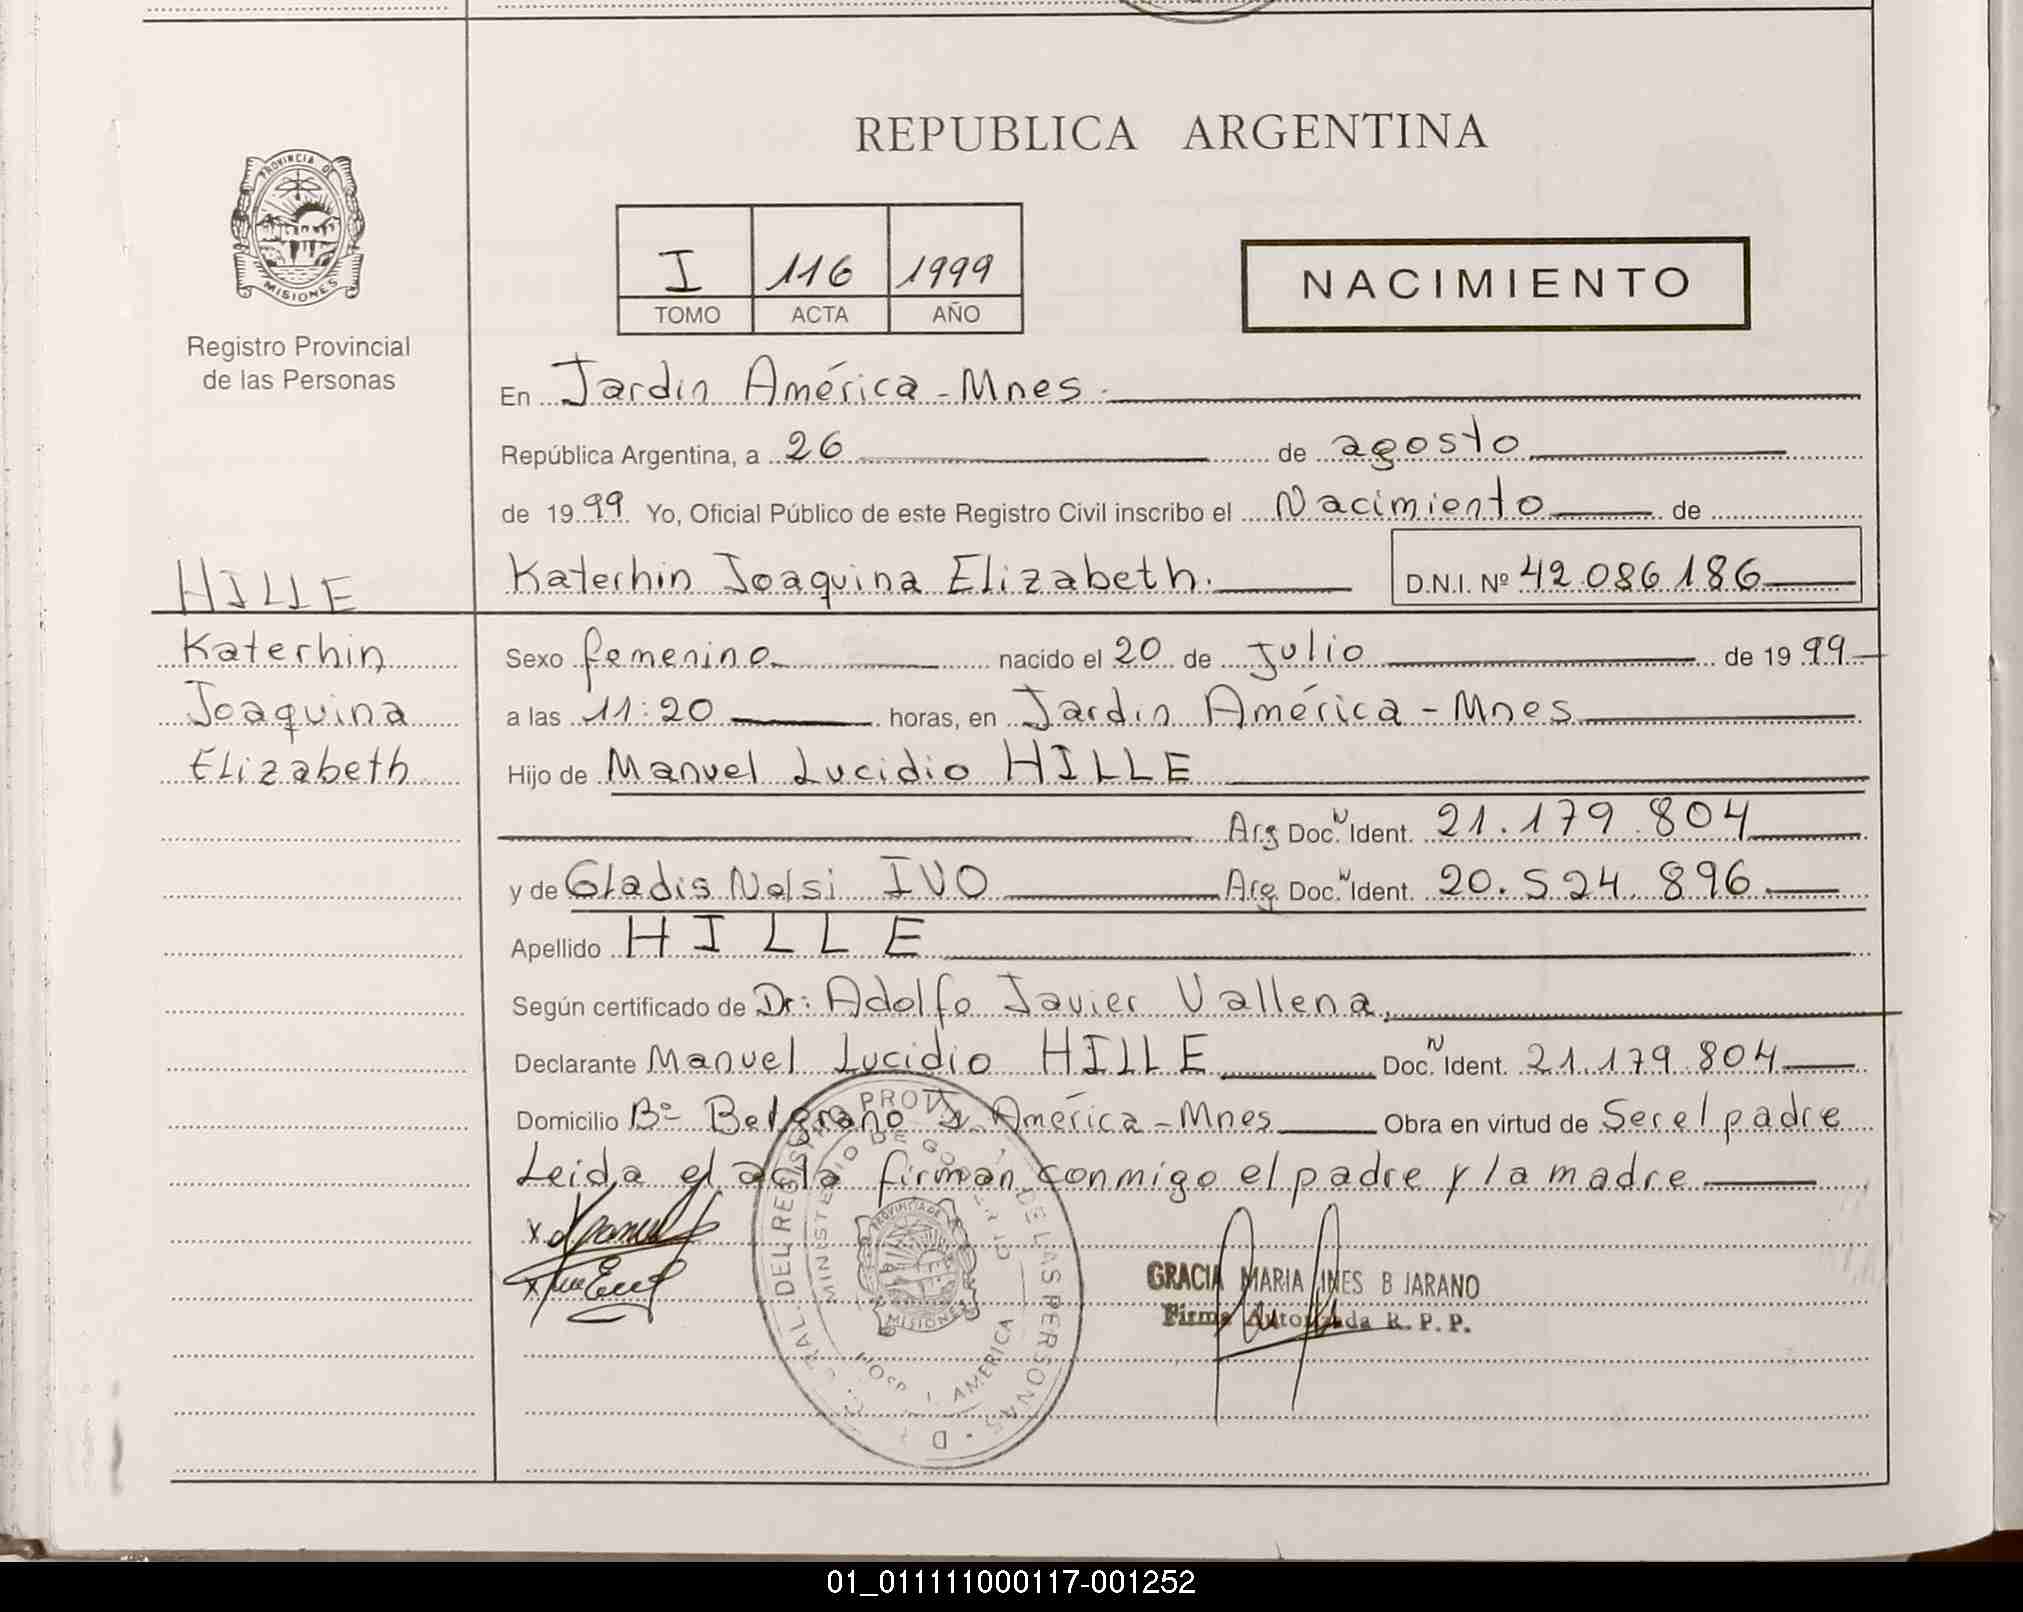 REPUBLICA ARGENTINA
PROVINCIA DE
MISIONES
Registro Provincial
de las Personas
I 116 1999
TOMO ACTA AÑO
NACIMIENTO
En Jardin América - Mnes.
República Argentina, a 26 de agosto
de 1999 Yo, Oficial Público de este Registro Civil inscribo el Nacimiento de
Katerhin Joaquina Elizabeth. D.N.I. Nº 42.086.186
HILLE
Katerhin
Joaquina
Elizabeth
Sexo femenino nacido el 20 de Julio de 1999
a las 11:20 horas, en Jardin América - Mnes
Hijo de Manuel Lucidio HILLE
Arg Doc. N Ident. 21.179.804
y de Gladis Nelsi IVO Arg Doc. N Ident. 20.524.896
Apellido HILLE
Según certificado de Dr: Adolfo Javier Vallena
Declarante Manuel Lucidio HILLE Doc. N Ident. 21.179.804
Domicilio Bº Belgrano J. América - Mnes Obra en virtud de Ser el padre
Leida el acta firman conmigo el padre y la madre
DEL REGISTRO PROV. DE LAS PERSONAS
MINISTERIO DE GOBIER
PROVINCIA DE
MISIONES
HOSP. J. AMERICA
GRACIA MARIA INES B JARANO
Firma Autorizada R. P. P.
01_011111000117-001252